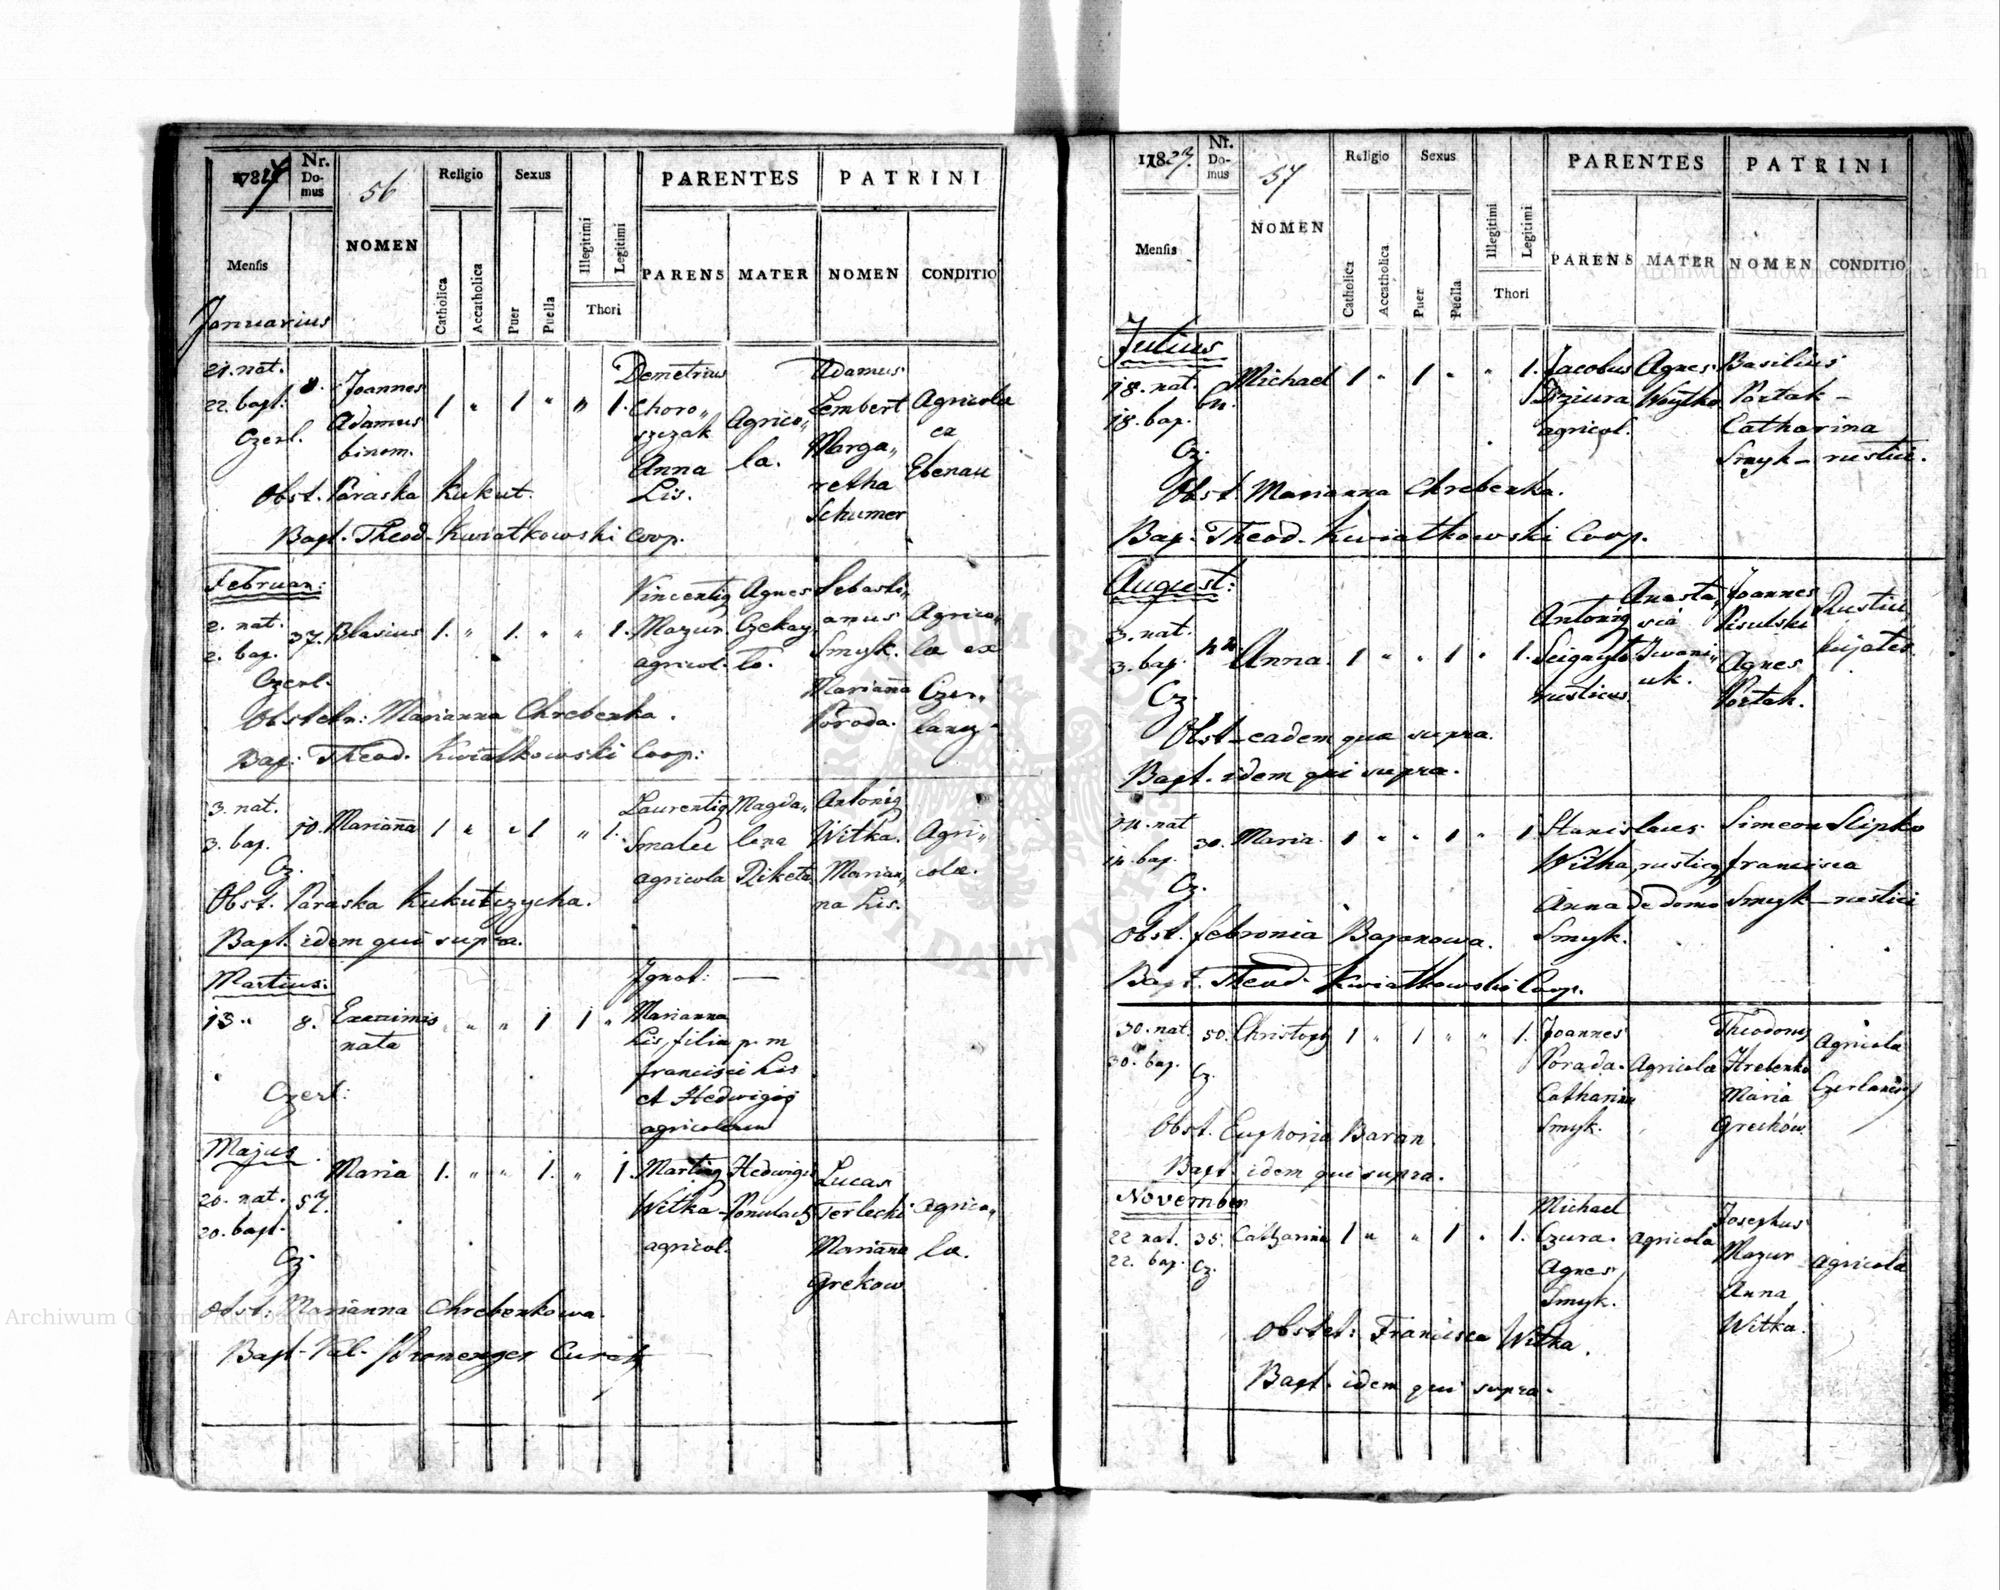 1827 Nr. Domus 56 NOMEN Religio Sexus PARENTES PATRINI
Mensis Catholica Accatholica Puer Puella Illegitimi Legitimi Thori PARENS MATER NOMEN CONDITIO
Januarius
21. nat. Demetrius Adamus
22. bapt: 8. Joannes 1 " 1 " " 1. Choro„ Lembert Agricola
Czerl. Adamus szczak Agrico„ Marga„ ex
binom. Anna la. retha Ebenau
Obst. Paraska Kukut. Lis. Schumer
Bapt. Theod. Kwiatkowski Coop.
Februar:
Vincentiq Agnes Sebasti„
2. nat. 37. Blasius 1. " 1. " " 1. Mazur Czekay„ anus Agrico„
2. bap. agricol. lo. Smyk. lae ex
Czerl. Marianna Czer„
Obstetr: Marianna Chrebenka. Poroda. lany.
Bap: Theod. Kwiatkowski Coop:
3. nat. Laurentiq Magda„ Antoniq
3. bap. 50. Marianna 1 " " 1 " 1. Smalec lena Witka. Agri„
Cz. agricola Diketa Marian„ colae.
Obst. Paraska Kukutczycha. na Lis.
Bapt. idem qui supra.
Martius: Ignot: —
13. " 8. Exanimis " " " 1 1 " Marianna
nata Lis, filia p. m
francisci Lis
Czerl: et Hedwigis
agricolarum
Majus.
Maria 1. " " 1. " 1. Martinq Hedwigis Lucas
20. nat. 57. Witka Terlecki agrico„
20. bapt. agricol. Marianna lae.
Cz. Grekow
Obst: Marianna Chrebenkowa.
Bapt. Val. Curatq
1827. Nr. Domus 57 NOMEN Religio Sexus PARENTES PATRINI
Mensis Catholica Accatholica Puer Puella Illegitimi Legitimi Thori PARENS MATER NOMEN CONDITIO
Julius
18. nat. Michael 1 " 1 " " 1. Jacobus Agnes Basilius
18. bap. Dziura Woytko Portak —
Cz. agricol. Catharina
Smyk — rustici.
Obst. Marianna Chrebenka.
Bap: Theod. Kwiatkowski Coop.
August: Anasta„ Joannes
3. nat. Antoniq sia Pisulski Rustici
3. bap. 44. Anna. 1 " " 1 " 1. Iwani„ Agnes hujates.
Cz. rusticus uk. Portak.
Obst. eadem quae supra.
Bapt. idem qui supra.
14. nat Stanislaus Simeon Slipko
14. bap. 30. Maria. 1 " " 1 " 1. Witka, rusticq francisca
Cz. Anna de domo Smyk — rustici
Obst. febronia Bajanowa. Smyk.
Bapt. Theod. Kwiatkowski Coop.
30. nat. 50. Christoph 1 " 1 " " 1. Joannes Theodorq Agricola
30. bap. Cz. Porada. Agricola Hrebenko
Catharina Maria
Obst. Euphoria Baran. Smyk. Grechów.
Bapt. idem qui supra.
November Michael Josephus
22 nat. 35. Catharina 1 " " 1 " 1. Czura. agricola Mazur agricola
22. bap. Cz. Agnes Anna
Smyk. Witka.
Obstet: Francisca Witka.
Bapt. idem qui supra.
Archiwum Główne Akt Dawnych
Archiwum Główne Akt Dawnych
ARCHIWUM GŁÓWNE AKT DAWNYCH